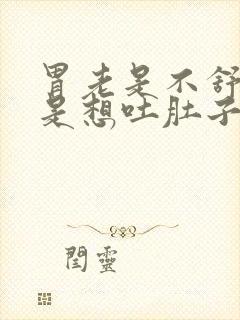 胃老是不舒
是想吐肚子
閆靈